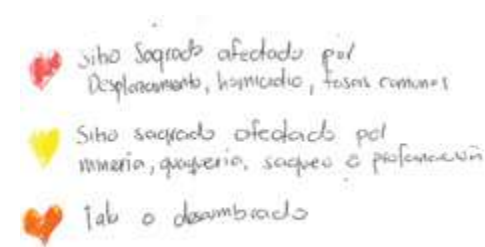 Sitio Sagrado afectado por
Desplazamiento, homicidio, fosas comunes
Sitio sagrado afectado por
minería, guaquería, saqueo o profanación
Talo o desombrado